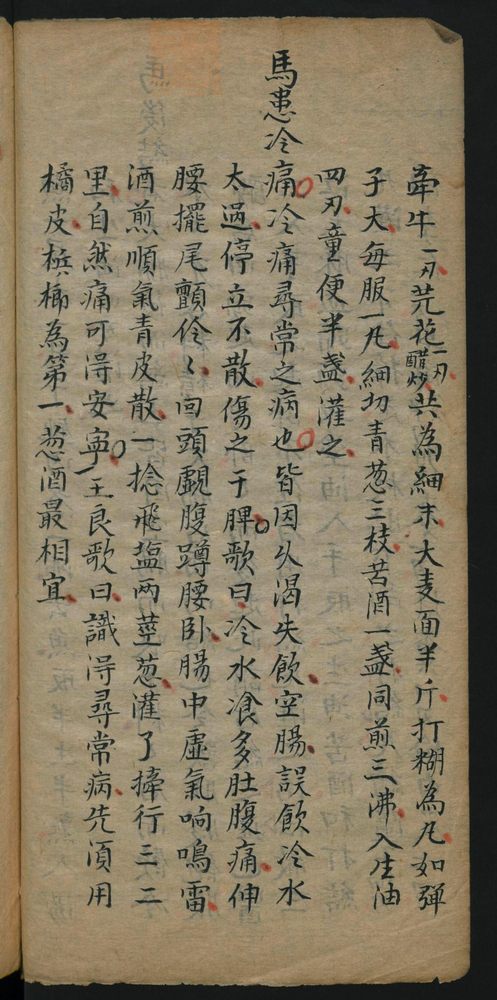 牽牛一刄芫花一刄醋炒共為細末大麦面半斤打糊為凡如弹
子大每服一凡細切青葱三枝苦酒一盏同煎三沸入生油
四刄童便半盏灌之
馬患冷痛冷痛尋常之病也皆因久渴失飲空腸誤飲冷水
太過停立不散傷之于脾歌曰冷水飡多肚腹痛伸
腰擺尾顫伶〻回頭覷腹蹲腰卧腸中虛氣响鳴雷
酒煎順氣青皮散一捻飛塩两莖葱灌了㨪行三二
里自然痛可淂安寧王良歌曰識淂尋常病先湏用
橘皮梹榔為第一葱酒最相宜